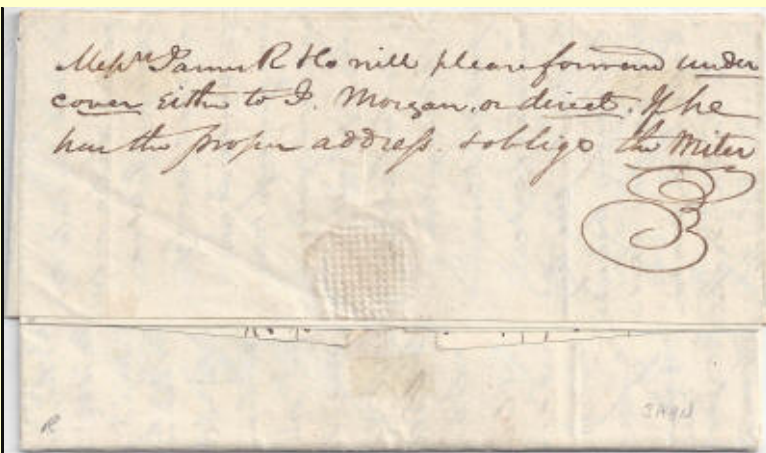 Messrs James R & Co will please forward under
cover either to J. Morgan, or direct; If he
has the proper address. & oblige the Writer